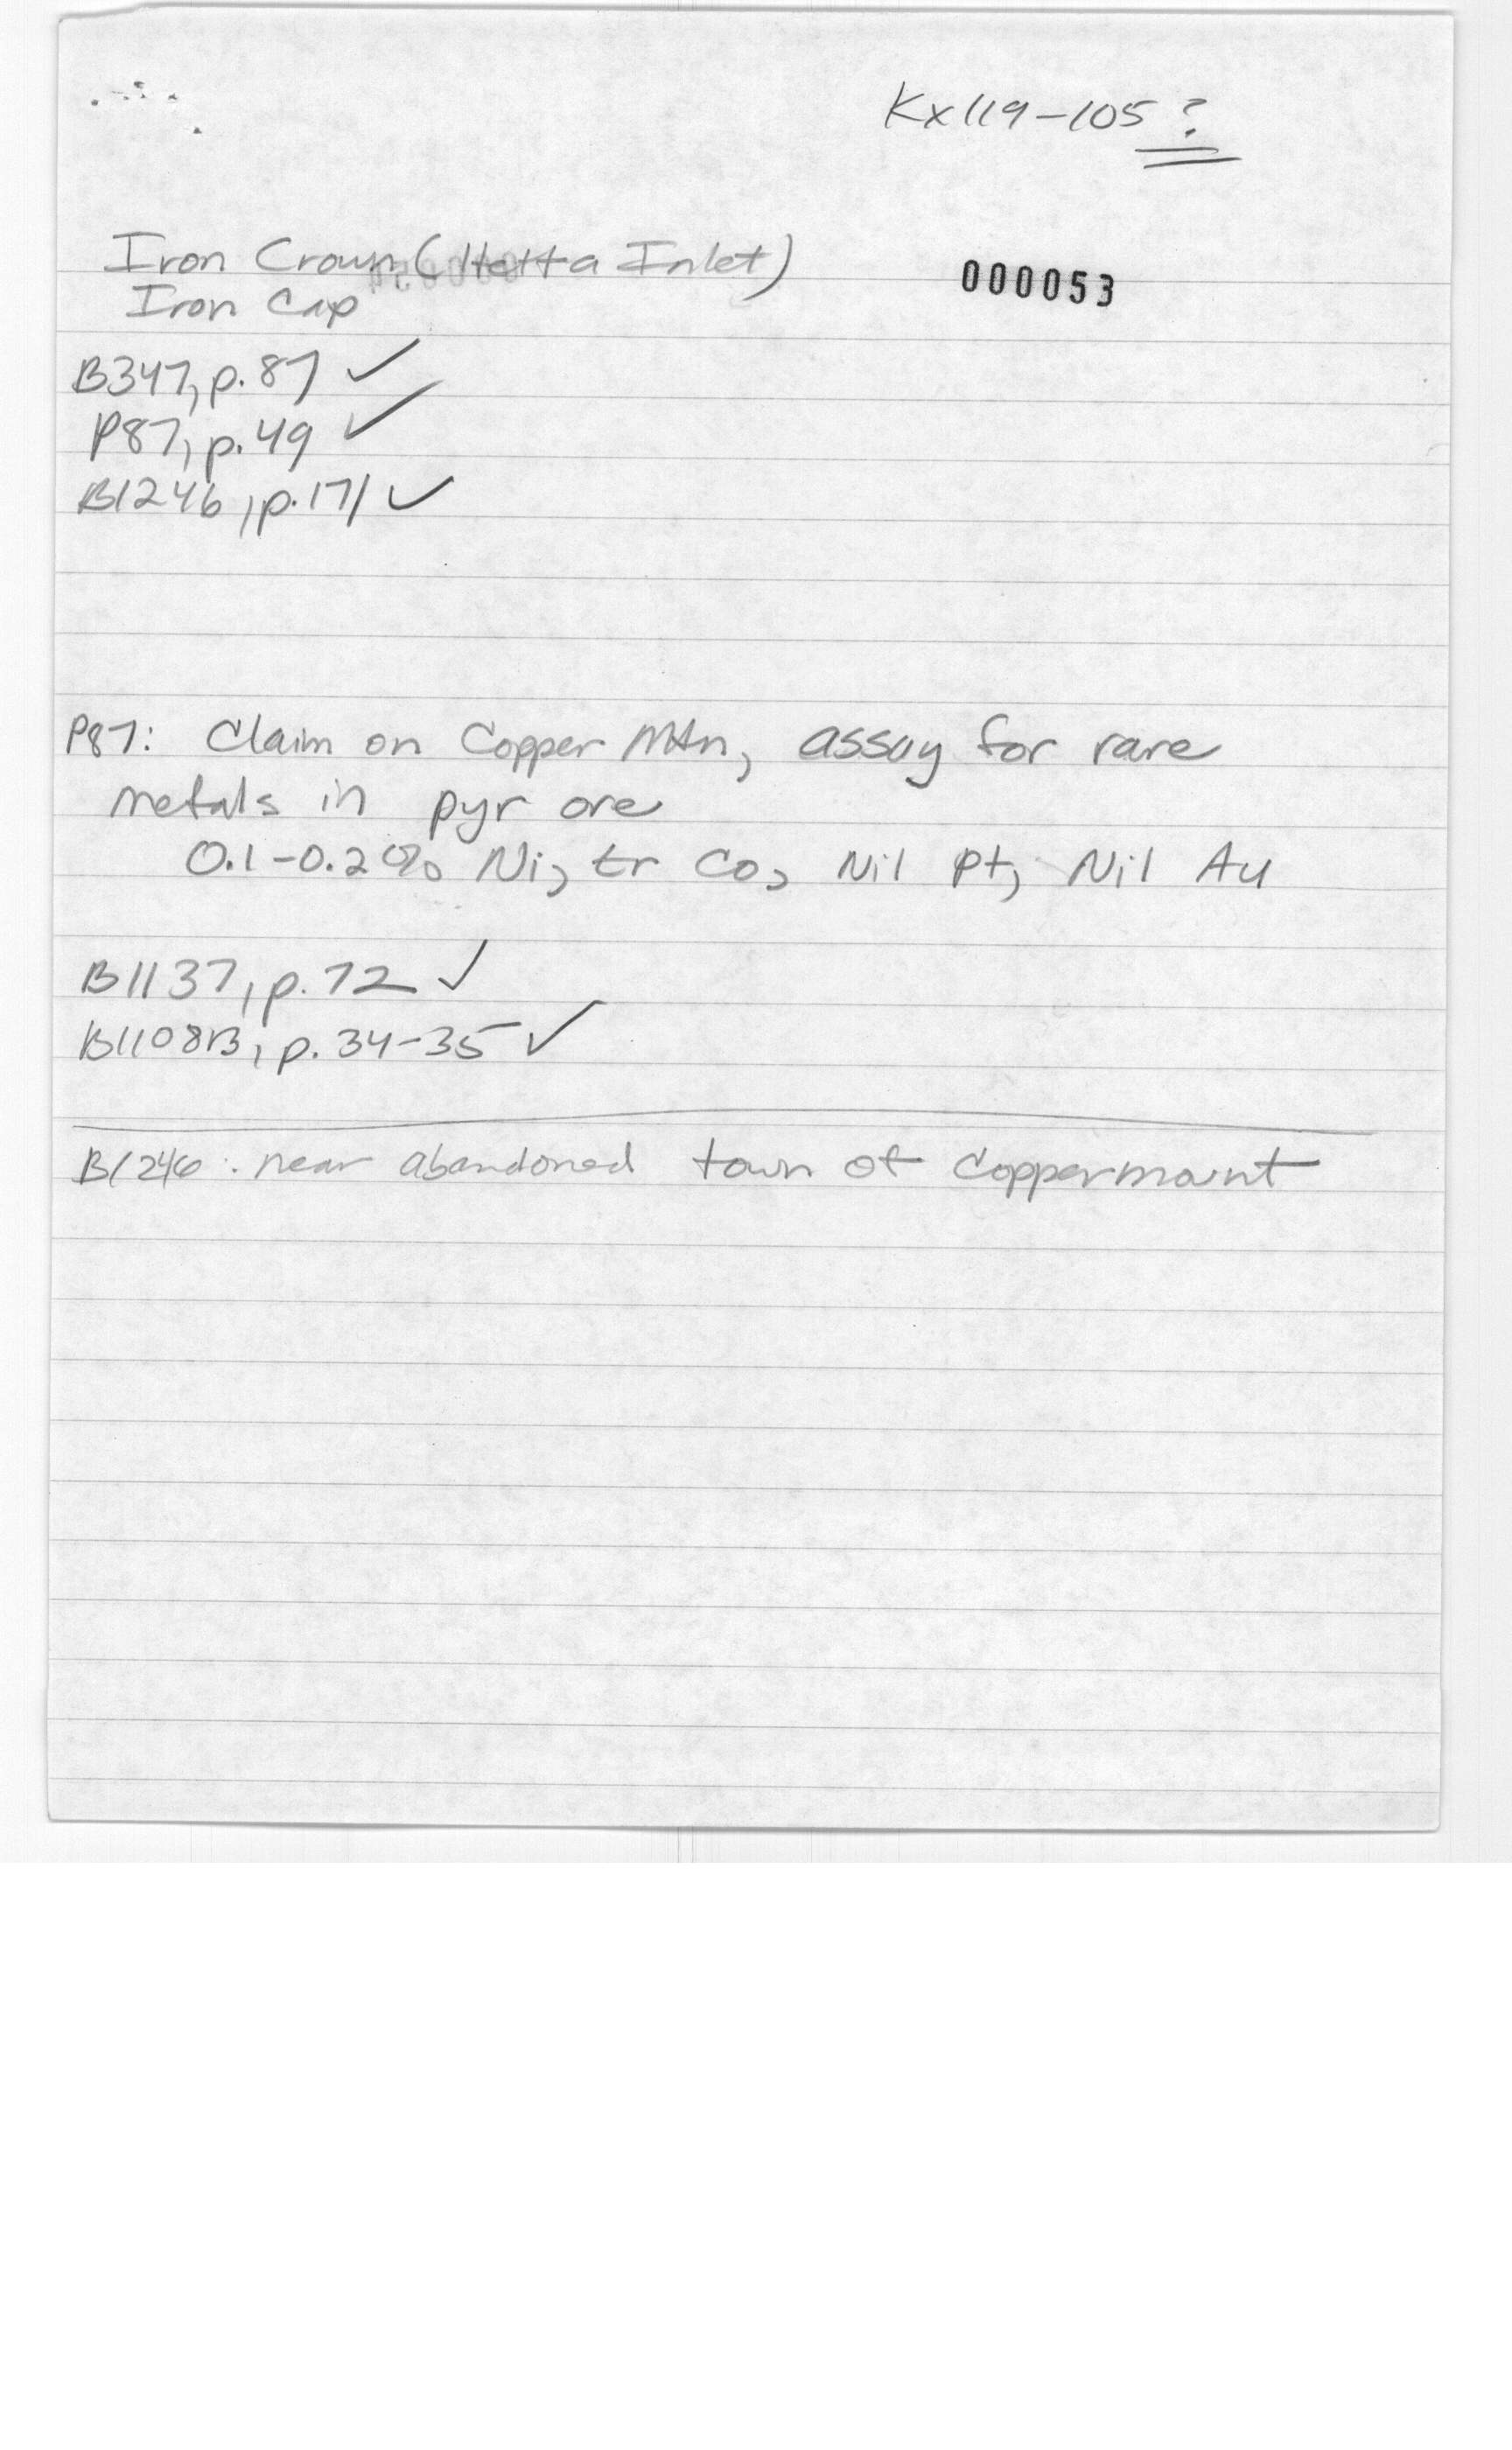 Kx119-105?
Iron Crown (Hetta Inlet)
000053
Iron Cap
B347, p.87 ✓
P87, p.49 ✓
B1246, p.171 ✓
P87: Claim on Copper Mtn, assay for rare
metals in pyr ore
0.1-0.2% Ni, tr Co, Nil Pt, Nil Au
B1137, p.72 ✓
B1108B, p. 34-35 ✓
B1246: near abandoned town of Coppermount